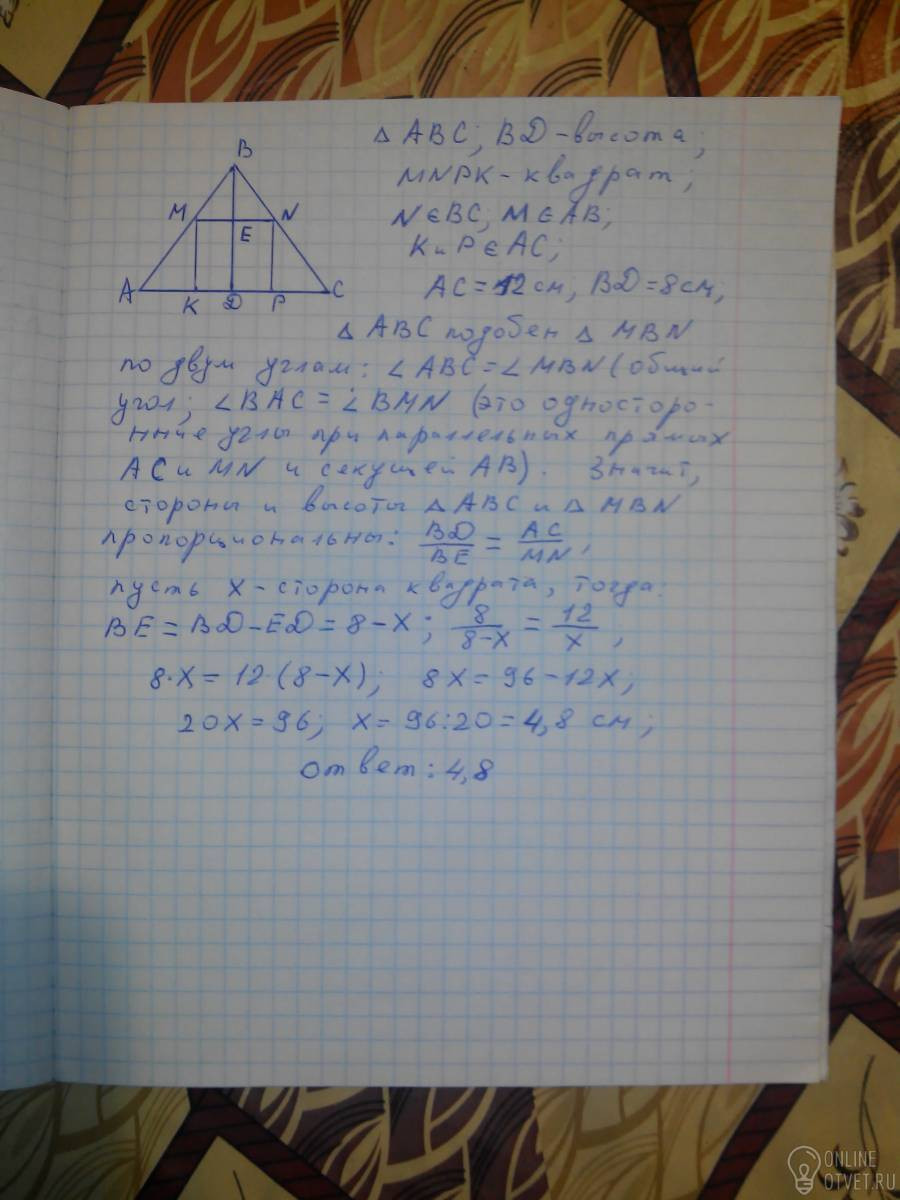 B
M N
E
A K D P C
△ ABC; BD - высота;
MNPK - квадрат;
N∈BC; M∈AB;
K и P∈AC;
AC = 12 см, BD = 8 см;
△ ABC подобен △ MBN
по двум углам: ∠ABC = ∠MBN (общий
угол; ∠BAC = ∠BMN (это односторо-
нние углы при параллельных прямых
AC и MN и секущей AB). Значит,
стороны и высоты △ ABC и △ MBN
пропорциональны: BD/BE = AC/MN,
пусть X - сторона квадрата, тогда:
BE = BD - ED = 8 - X; 8/8-X = 12/X,
8·X = 12·(8-X); 8X = 96 - 12X;
20X = 96; X = 96:20 = 4,8 см;
Ответ: 4,8
ONLINE
OTVET.RU